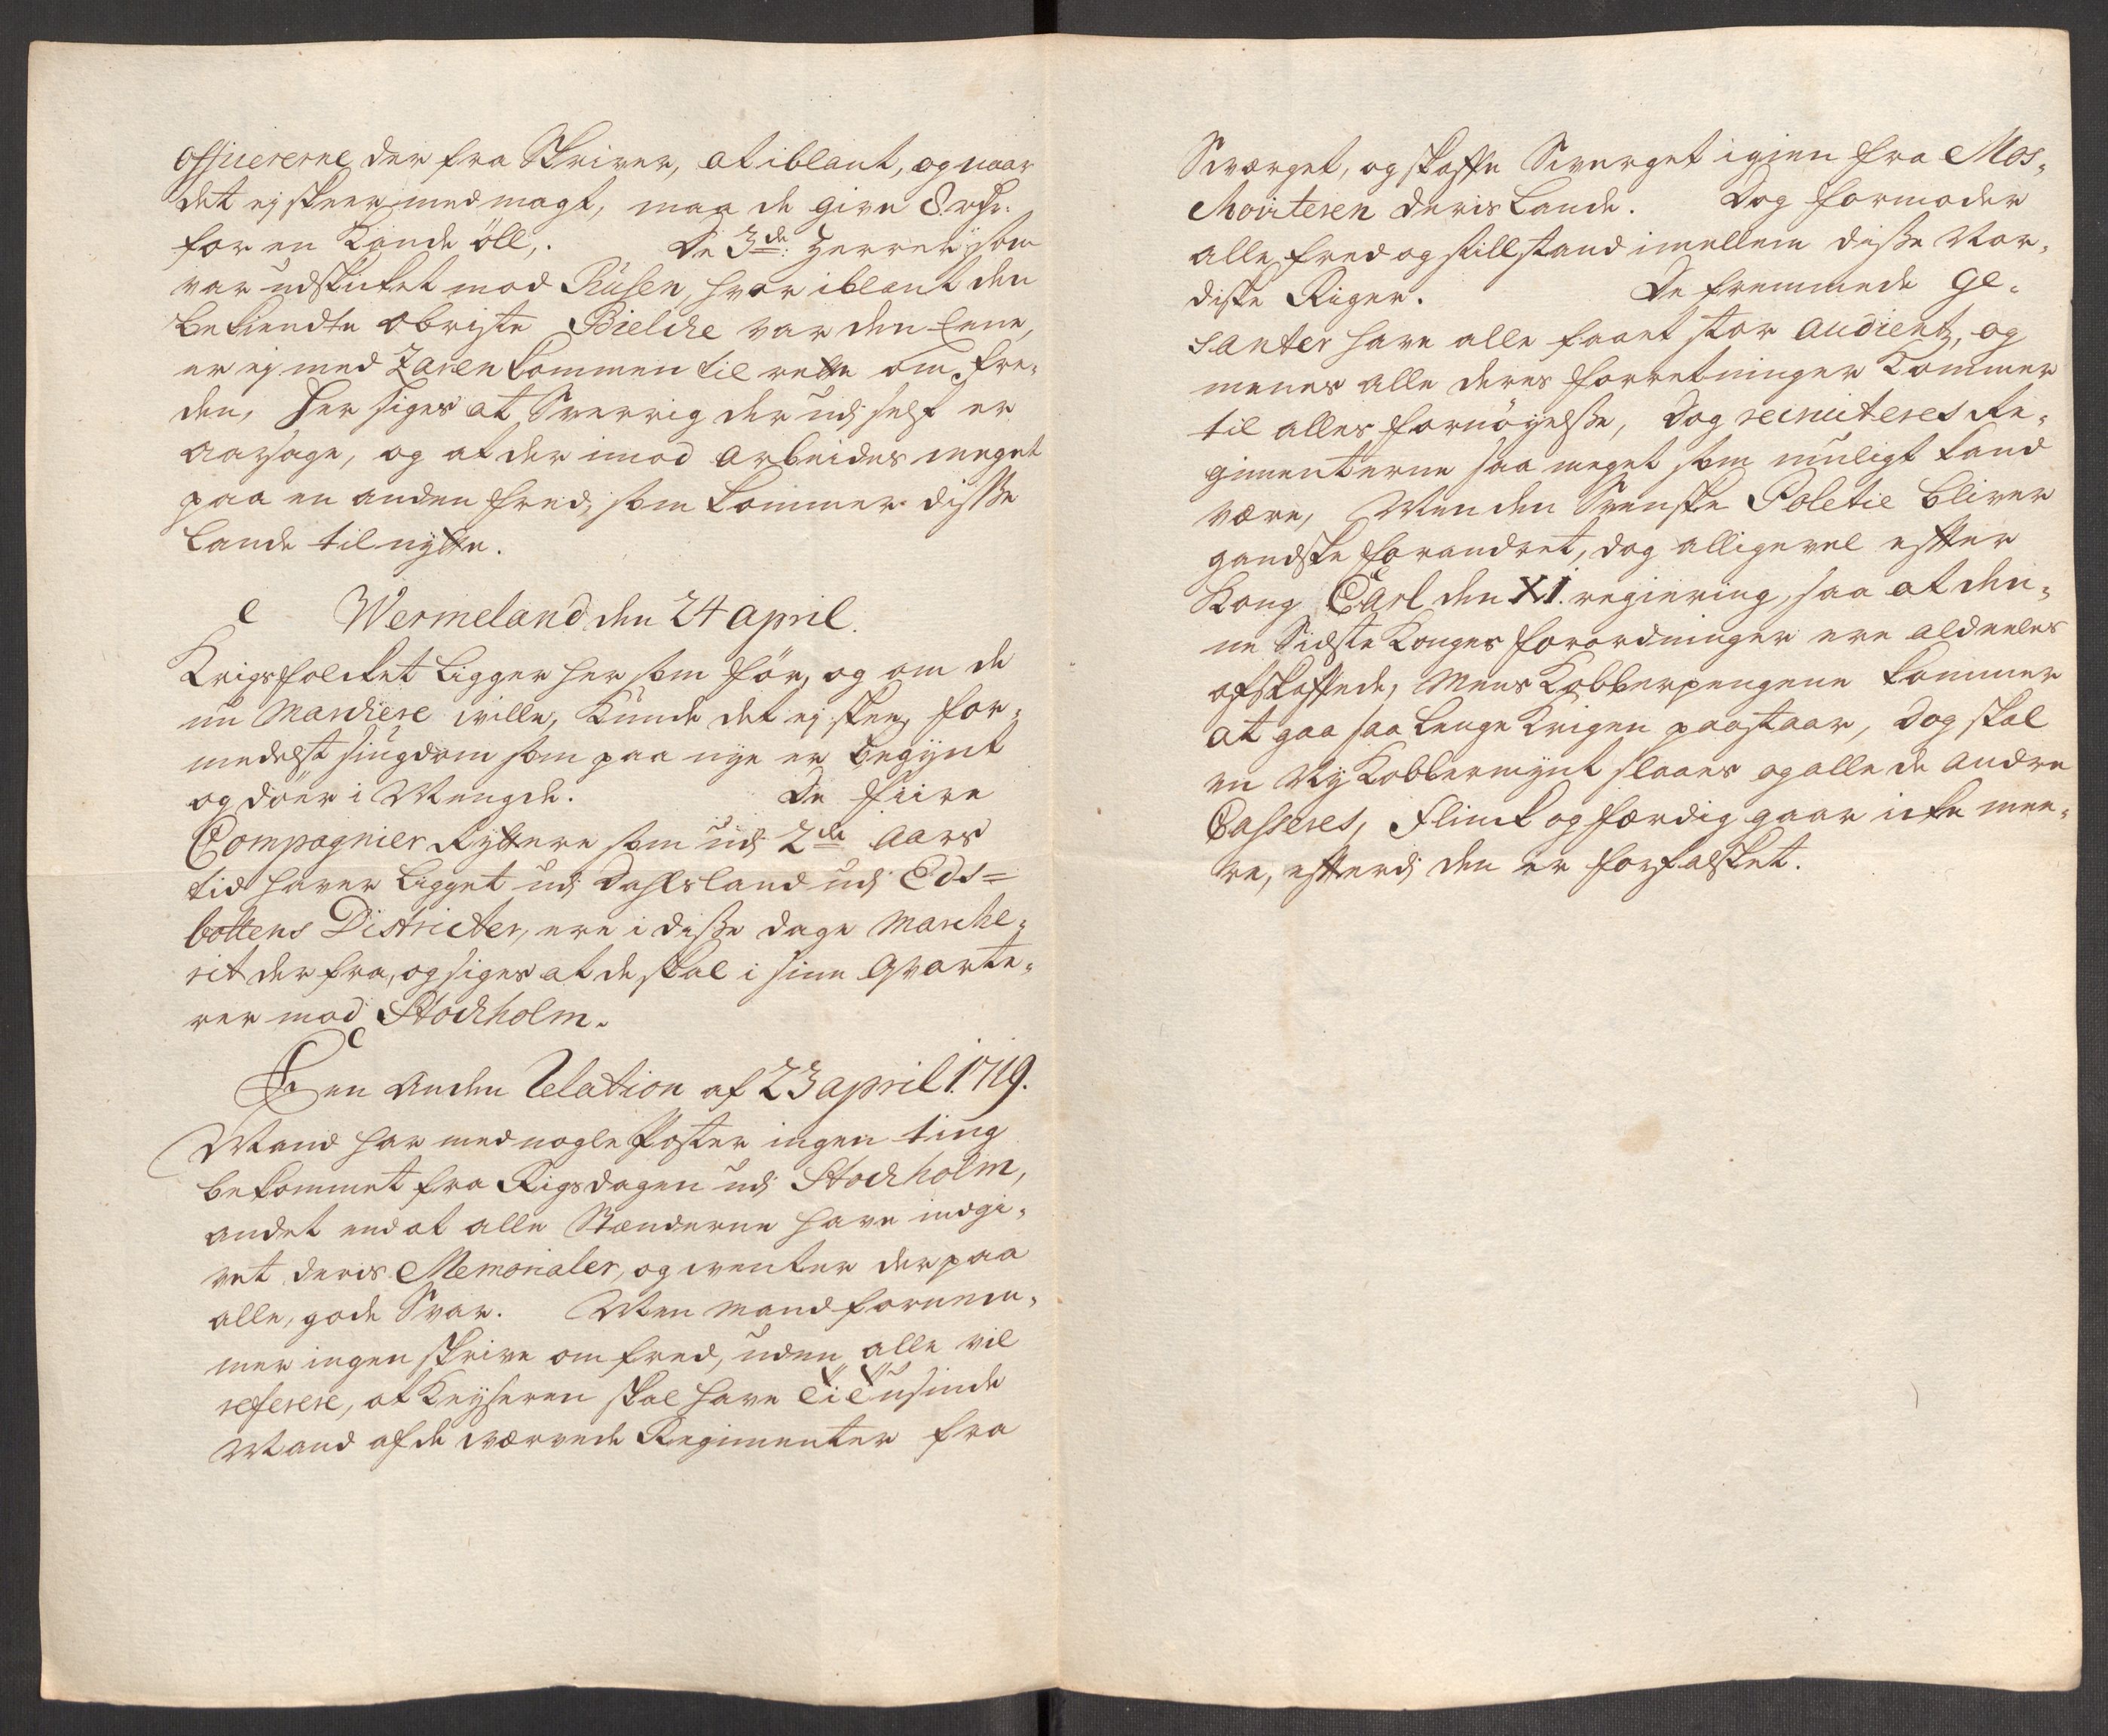 Officererne der fra Skriver, at iblant, og naar
det ej skeer med magt, maa de give 8 rdr:
for en Kande öll,. De 3de: Herrer som
var udskiket mod Rüsen, hvor iblant den
bekiendte Obriste Bielche var den Eene,
er ej med Zaren kommen til rette om Fre-
den, Her siges at Sverrig der udj selv er
aarsage, og at der imod arbeides meget
paa en anden fred, som kommer disse
lande til nytte.
Wermeland den 24 april.
Krigsfolcket ligger her som för, og om de
nu Marchere wille, kunde det ej skee, for-
medelst siugdom som paa nye er begynt
og döer i Mengde. De fiire
Compagnier Ryttere som udj 2de aars
tid haver ligget udj Dahlsland udj Eds=
bottens Districter, ere i disse dage Marche-
rit der fra, og siges at de skal i sine Qvarte-
rer mod Stockholm.
Een Anden Relation af 23 april 1719.
Mand har med nogle Poster ingen ting
bekommet fra Rigsdagen udj Stockholm,
andet end at alle Stænderne have indgi-
vet deris Memorialer, og wenter der paa
alle, gode Svar. Men mand fornem-
mer ingen skrive om fred, uden alle vil
referere, at Keyseren skal have Ti Tusinde
Mand af de wærvede Regimenter fra
Swærget, og skaffe Swerget igien fra Mos-
Movitesen deris Lande. Dog formoder
alle fred og stillstand imellem disse Nor-
diske Riger. De fremmede Ge-
santer have alle faaet stor audientz, og
menes alle deres forretninger kommer
til alles fornöyelse, dog recruteres Re-
gimenterne saa meget som muligt kand
være, Men den Svenske Poletie bliver
gandske forandret, dog alligevel effter
Kong Carl den XI. regiering, saa at den-
ne Sidste Konges forordninger ere aldeeles
afskaffede, Mens Kobberpengene kommer
at gaa saa lenge Krigen paastaar, dog skal
en Ny Kobbermynt slaaes og alle de andre
Casseres, Flinck og færdig gaar icke mee-
re, efterdj den er forfalsket.